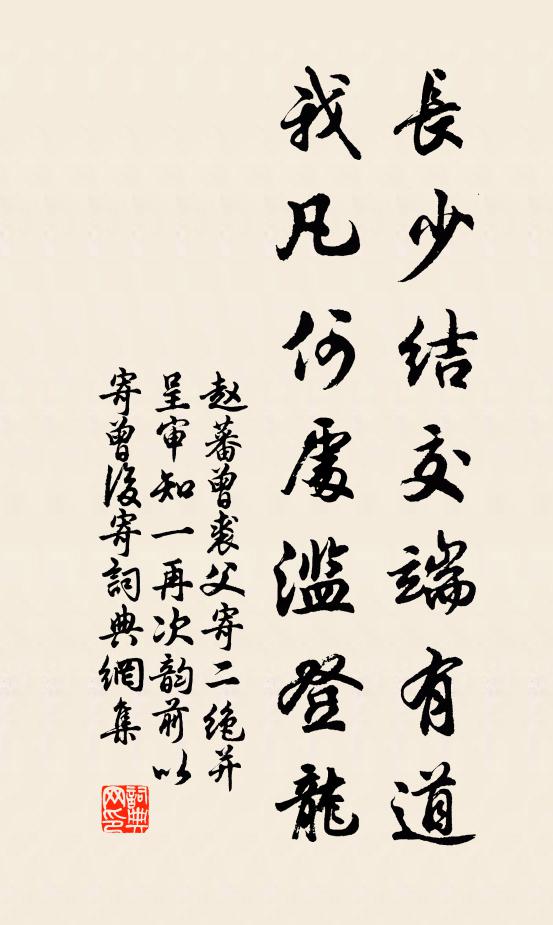 長少结交端有道
我凡何處滥登龍
赵蕃曾裘父寄二绝并
呈审知一再次韵前以
寄曾後寄詞典網集
詞典
网印